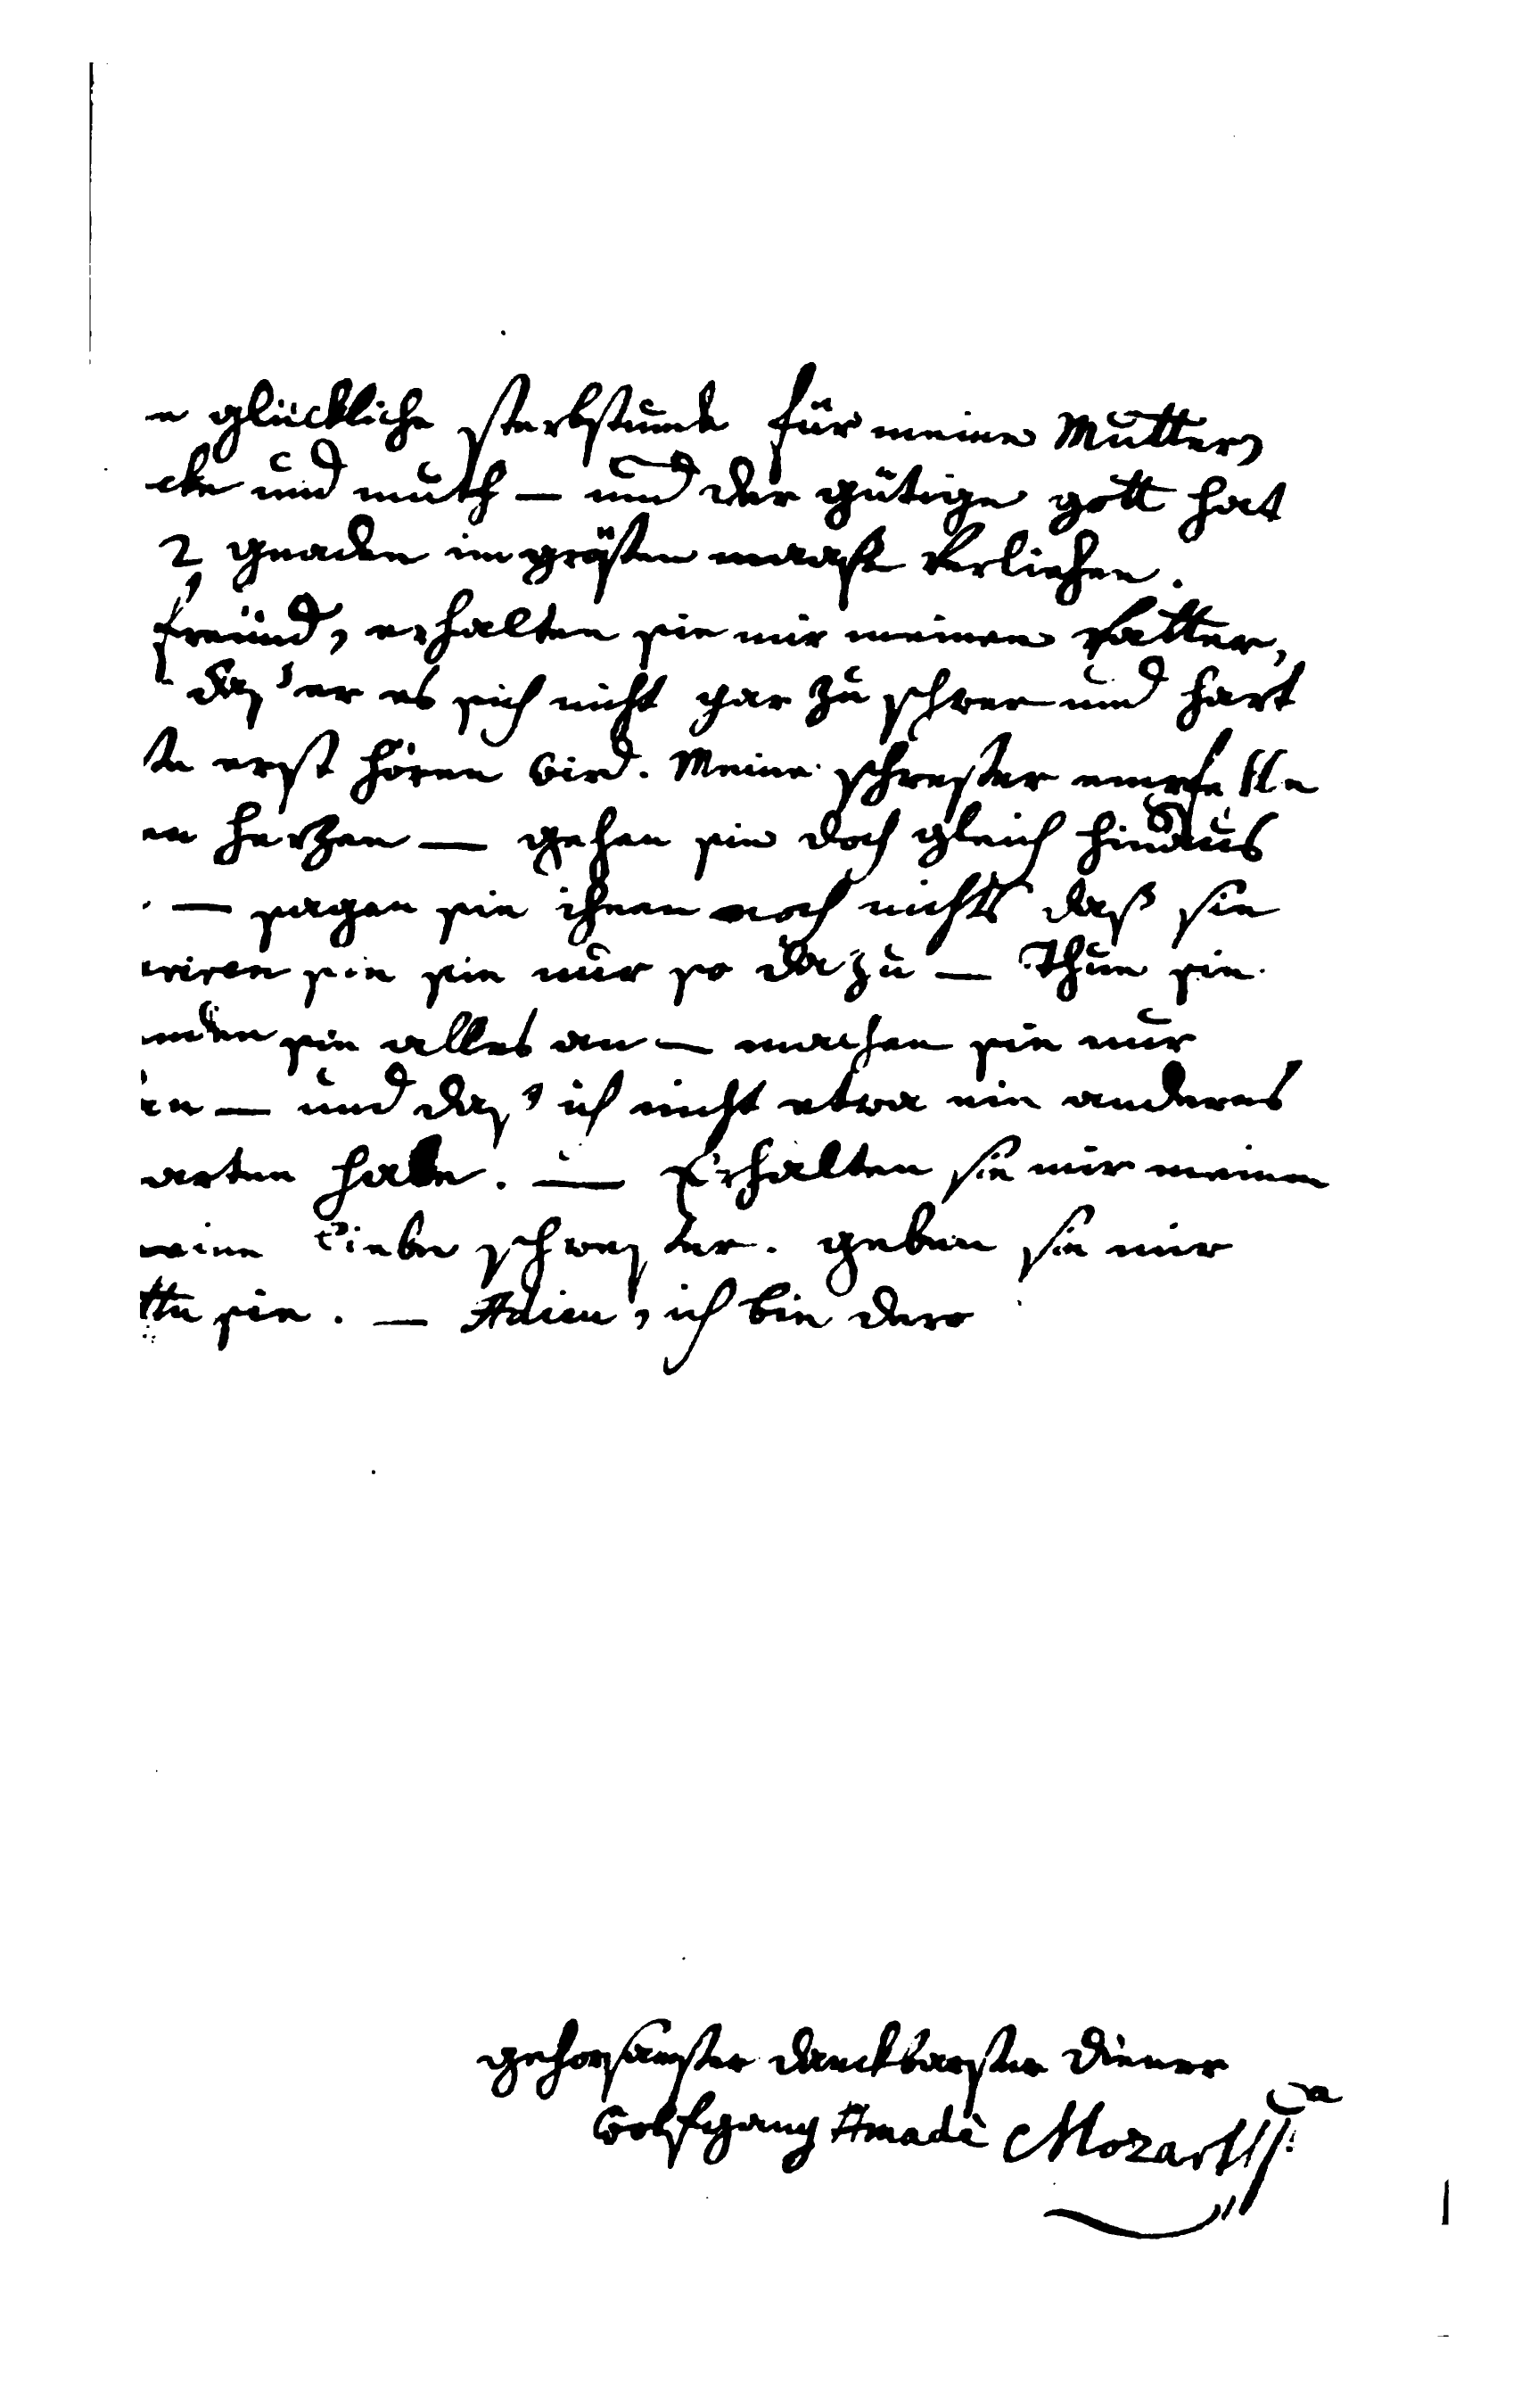 n glückliche sterbstunde für meine Mutter,
cke und muth – und der gütige gott hat
2 gnaden im grösten maaße verliehen.
freünd, erhalten sie mir meinen vatter,
daß er es sich nicht gar zu schwer und hart
te erst hören wird. Meine schwester empfehle
en herzen — gehen sie doch gleich hinaus
— sagen sie ihnen noch nichts daß sie
eriren sie sie nur so dazu — Thun sie
enden sie alles an — machen sie nur
en — und daß ich nicht etwa ein anderes
arten habe. — Erhalten sie mir meinen
eine liebe schwester. geben sie mir
tte sie. — Adieu, ich bin dero
gehorsamster danckbarster diener
Wolfgang Amadè Mozart